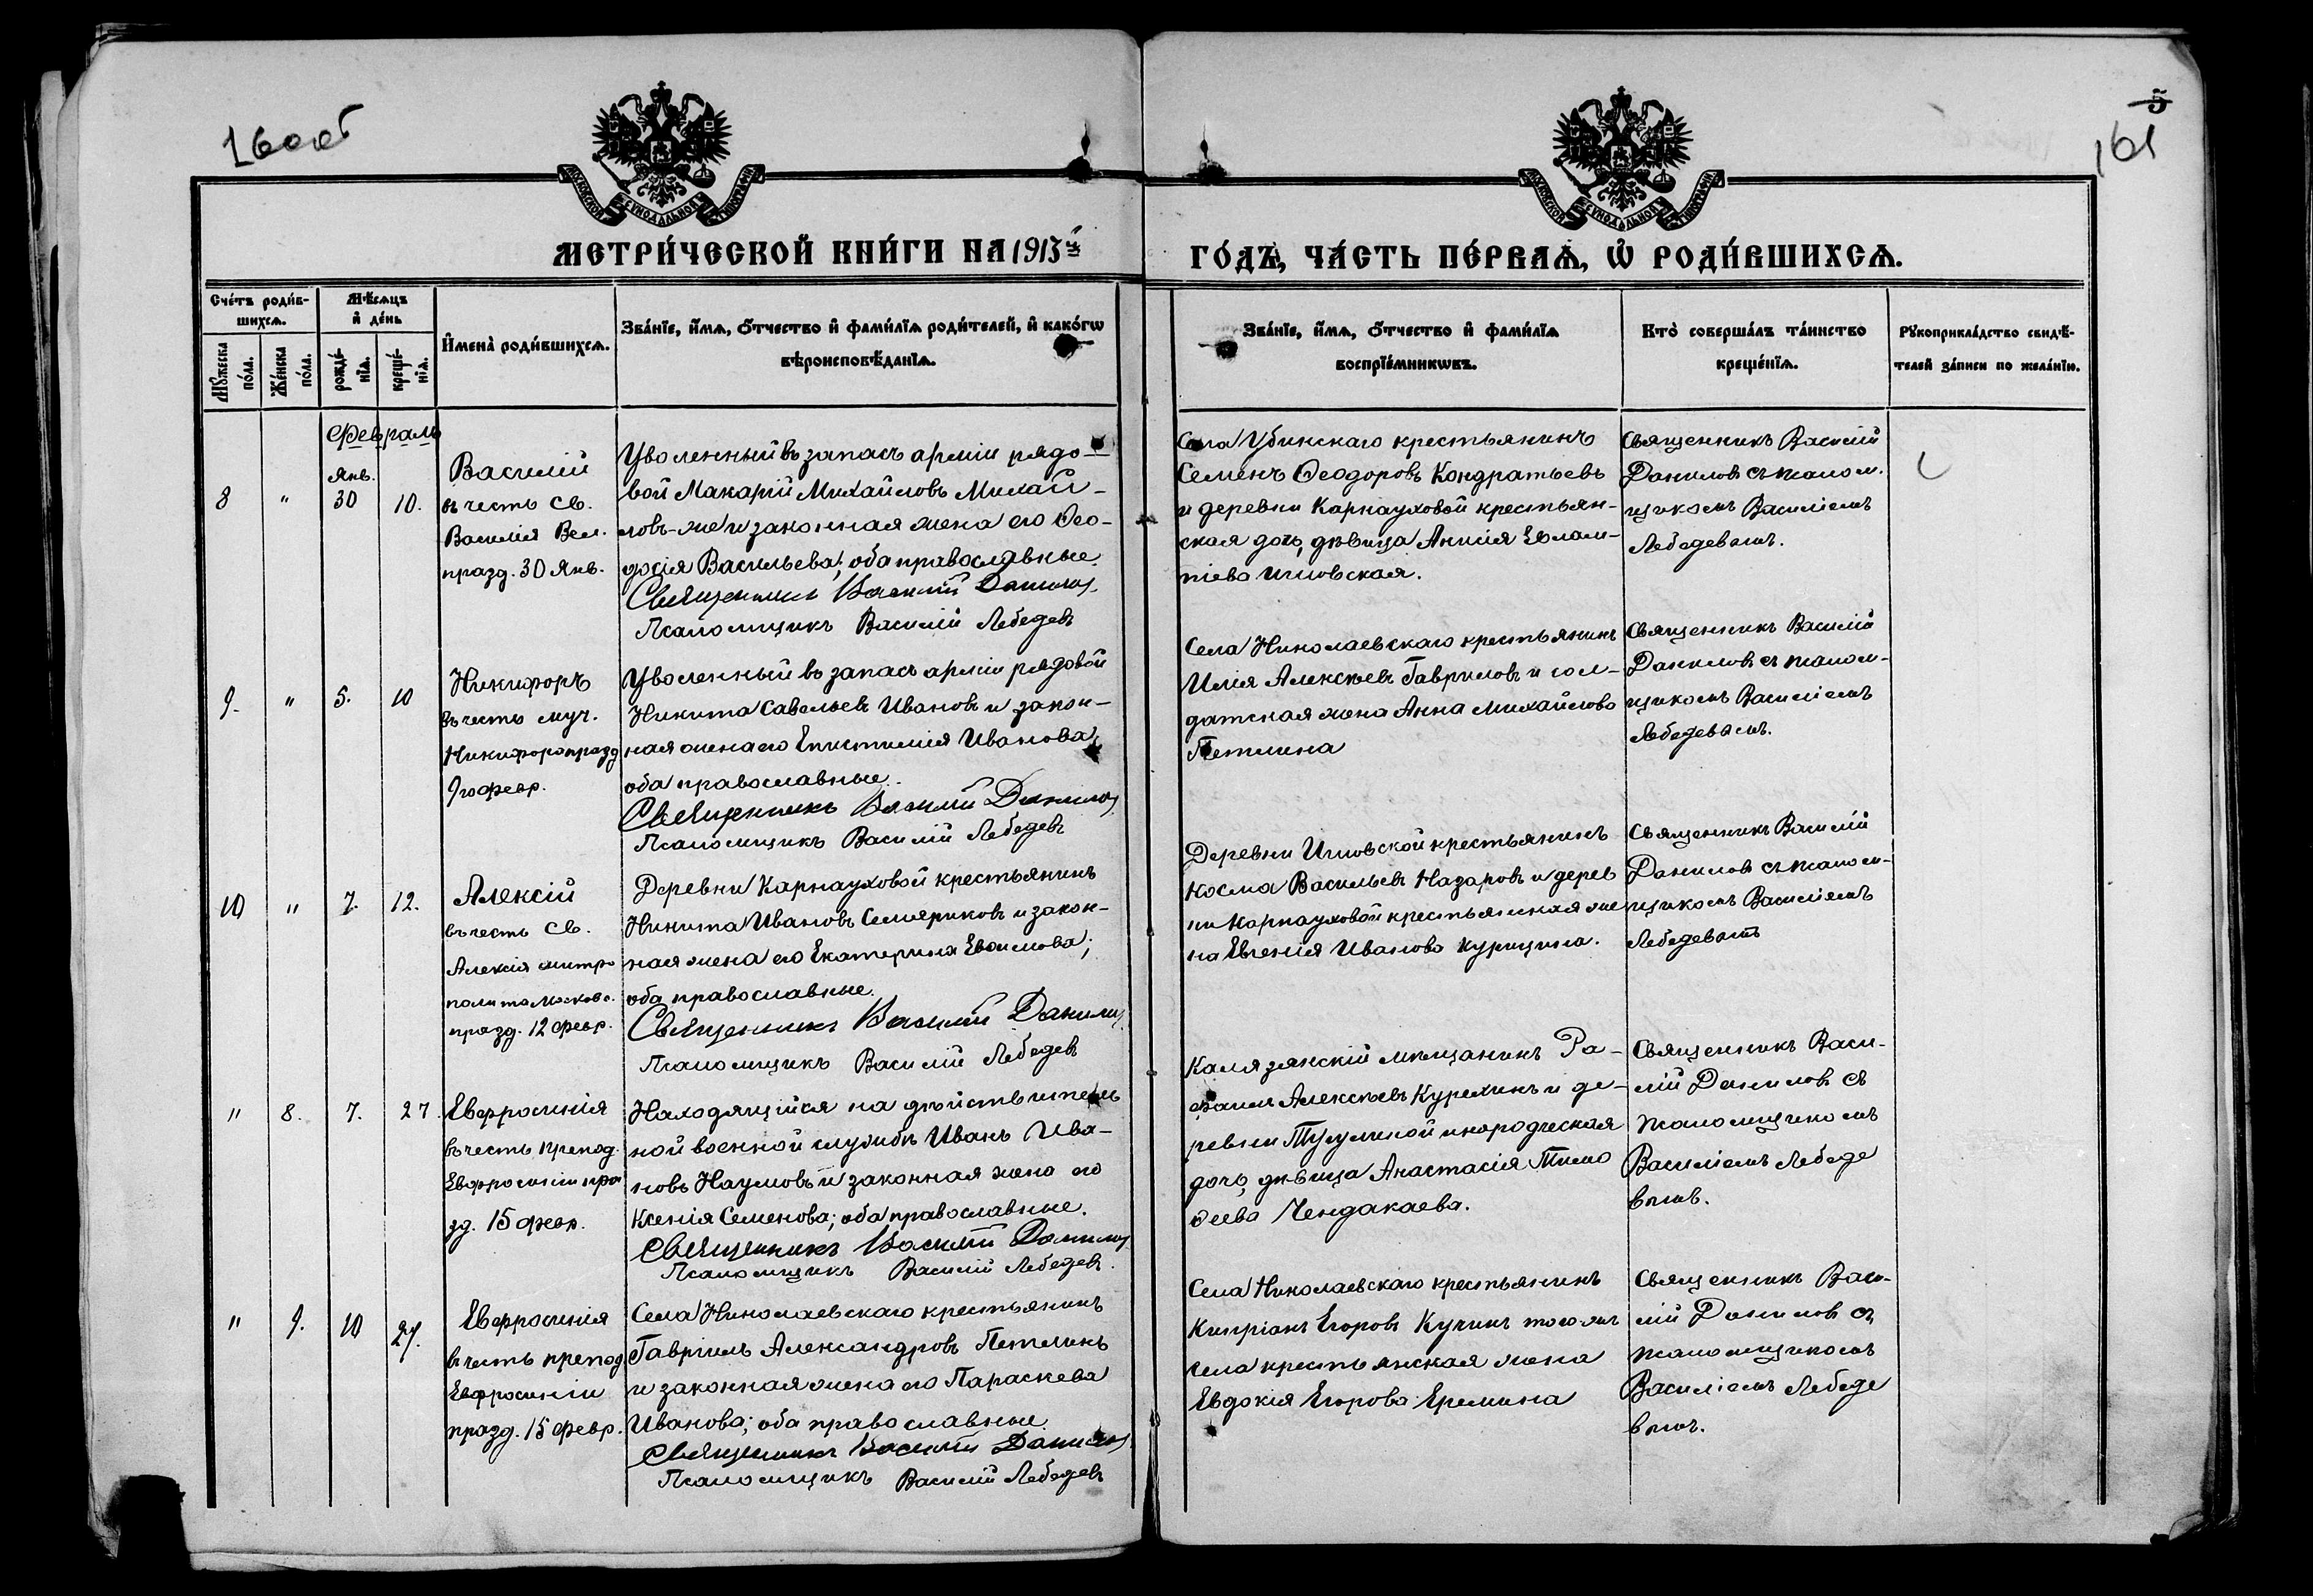 160об
5
161
МОСКОВСКОЙ СѴНОДАЛЬНОЙ ТИПОГРАФIИ
МОСКОВСКОЙ СѴНОДАЛЬНОЙ ТИПОГРАФIИ
МЕТРИ́ЧЕСКОЙ КНИ́ГИ НА 1913й
ГО́ДЪ, ЧА́СТЬ ПЕ́РВАѦ, Ѡ҆ РОДИ́ВШИХСѦ.
Сче́тъ роди́в-
шихсѧ.
Мѣ́сѧцъ
и҆ де́нь
Мꙋ́жеска
по́ла.
Же́нска
по́ла.
рожде́-
нїѧ.
креще́-
нїѧ.
И҆мена̀ роди́вшихсѧ.
Зва́нїе, и҆́мѧ, ѻ҆́тчество и҆ фами́лїѧ роди́телей, и҆ како́гѡ
вѣроисповѣ́данїѧ.
Зва́нїе, и҆́мѧ, ѻ҆́тчество и҆ фами́лїѧ
воспрїе́мникѡвъ.
Кто̀ соверша́лъ та́инство
креще́нїѧ.
Рꙋкоприкла́дство свидѣ́-
телей за́писи по жела́нїю.
Февраль
8
"
Янв.
30
10.
Василій
въ честь св.
Василія Вел.
празд. 30 Янв.
Уволенный въ запасъ арміи рядо-
вой Макарій Михайловъ Михай-
ловъ-же и законная жена его Ѳео-
досія Васильева; оба православные.
Священникъ Василій Даниловъ
Псаломщикъ Василій Лебедевъ
Села Убинскаго крестьянинъ
Семенъ Ѳеодоровъ Кондратьевъ
и деревни Карнауховой крестьян-
ская дочь, дѣвица Анисія Евлам-
піева
Священникъ Василій
Даниловъ съ псалом-
щикомъ Василіемъ
Лебедевымъ.
9.
"
5.
10
Никифоръ
въ честь муч.
Никифора празд
9го февр.
Уволенный въ запасъ арміи рядовой
Никита Савельевъ Ивановъ и закон-
ная жена его Епистимія Иванова;
оба православные.
Священникъ Василій Даниловъ
Псаломщикъ Василій Лебедевъ
Села Николаевскаго крестьянинъ
Илія Алексѣевъ Гавриловъ и сол-
датская жена Анна Михайлова
Петлина
Священникъ Василій
Даниловъ съ псалом-
щикомъ Василіемъ
Лебедевымъ.
10
"
7.
12.
Алексій
въ честь св.
Алексія митро
полита Москов.
празд. 12 февр.
Деревни Карнауховой крестьянинъ
Никита Ивановъ Семериковъ и закон-
ная жена его Екатерина Евѳимова;
оба православные.
Священникъ Василій Даниловъ
Псаломщикъ Василій Лебедевъ
Деревни крестьянинъ
Косма Васильевъ Назаровъ и дерев
ни Карнауховой крестьянская же
на Евгенія Иванова Курицина.
Священникъ Василій
Даниловъ съ псалом-
щикомъ Василіемъ
Лебедевымъ
"
8.
7.
27.
Евфросинія
въ честь препод.
Евфросиніи пра
зд. 15 февр.
Находящійся на дѣйствитель
ной военной службѣ Иванъ Ива-
новъ Наумовъ и законная жена его
Ксенія Семенова; оба православные.
Священникъ Василій Даниловъ
Псаломщикъ Василій Лебедевъ.
Калязянскій мѣщанинъ Ра-
фаилъ Алексѣевъ Курехинъ и де-
ревни инородческая
дочь, дѣвица Анастасія Тимо
ѳеева Чендакаева.
Священникъ Васи-
лій Даниловъ съ
псаломщикомъ
Василіемъ Лебеде
вымъ.
"
9.
10
27.
Евфросинія
въ честь препод
Евфросиніи
празд. 15 февр.
Села Николаевскаго крестьянинъ
Гавріилъ Александровъ Петлинъ
и законная жена его Параскева
Иванова; оба православные
Священникъ Василій Даниловъ
Псаломщикъ Василій Лебедевъ
Села Николаевскаго крестьянинъ
Кипріанъ Егоровъ Кучинъ того же
села крестьянская жена
Евдокія Егорова Еремина
Священникъ Васи-
лій Даниловъ съ
псаломщикомъ
Василіемъ Лебеде
вымъ.